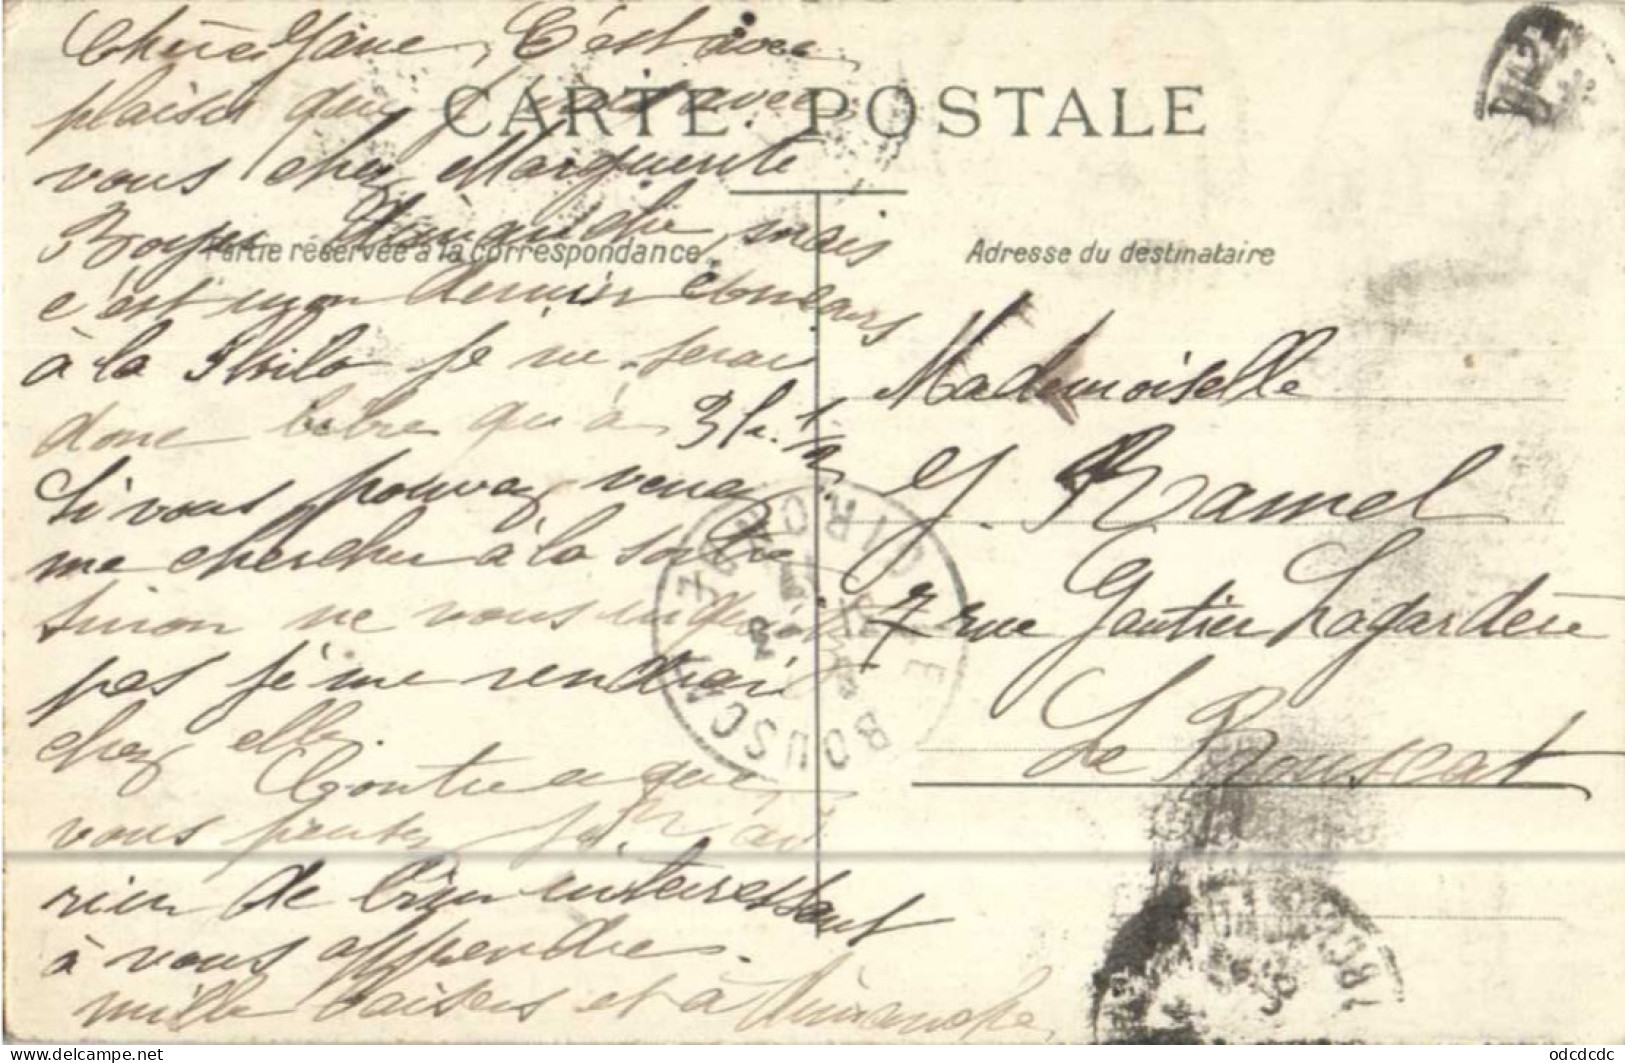 Chère Jane, C'est avec
plaisir que j'irai avec
vous chez Marguerite
CARTE POSTALE
Boyer dimanche, mais
Partie réservée à la correspondance
Adresse du destinataire
c'est mon dernier concours
à la Philo je ne serai
donc libre qu'à 3 h. 1/2
Si vous pouvez venez
me chercher à la sortie
sinon ne vous inquiétez
pas je me rendrai
chez elle.
Contre ce que
vous pensez je n'ai
rien de bien interessant
à vous apprendre.
mille baisers et à Dimanche
Mademoiselle
J. Ramel
7 rue Gautier Lagardère
Le Bouscat
LE BOUSCAT GIRONDE
delcampe.net
odcdcdc